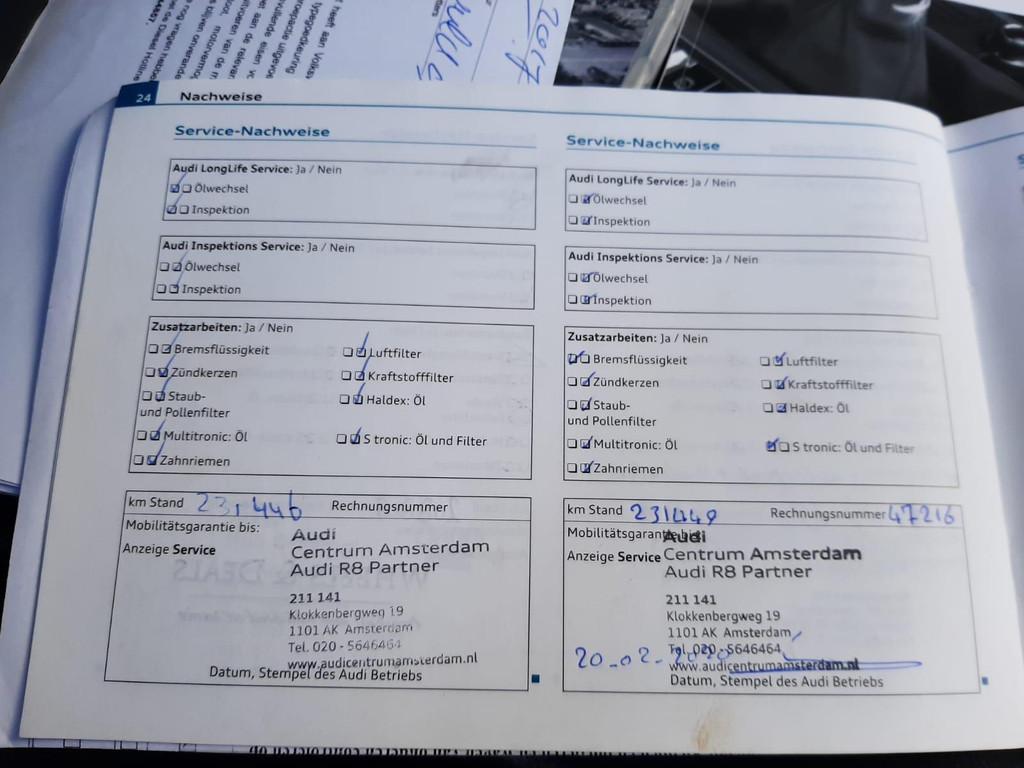 2017
24 Nachweise
Service-Nachweise
Audi LongLife Service: Ja / Nein
Ölwechsel
Inspektion
Audi Inspektions Service: Ja / Nein
Ölwechsel
Inspektion
Zusatzarbeiten: Ja / Nein
Bremsflüssigkeit
Luftfilter
Zündkerzen
Kraftstofffilter
Staub-
und Pollenfilter
Haldex: Öl
Multitronic: Öl
S tronic: Öl und Filter
Zahnriemen
km Stand 231446 Rechnungsnummer
Mobilitätsgarantie bis:
Anzeige Service
Audi
Centrum Amsterdam
Audi R8 Partner
211 141
Klokkenbergweg 19
1101 AK Amsterdam
Tel. 020 - 5646464
www.audicentrumamsterdam.nl
Datum, Stempel des Audi Betriebs
Service-Nachweise
Audi LongLife Service: Ja / Nein
Ölwechsel
Inspektion
Audi Inspektions Service: Ja / Nein
Ölwechsel
Inspektion
Zusatzarbeiten: Ja / Nein
Bremsflüssigkeit
Luftfilter
Zündkerzen
Kraftstofffilter
Staub-
und Pollenfilter
Haldex: Öl
Multitronic: Öl
S tronic: Öl und Filter
Zahnriemen
km Stand 231449 Rechnungsnummer 47216
Mobilitätsgarantie bis:
Anzeige Service
Audi
Centrum Amsterdam
Audi R8 Partner
211 141
Klokkenbergweg 19
1101 AK Amsterdam
Tel. 020 - 5646464
20-02-2020
www.audicentrumamsterdam.nl
Datum, Stempel des Audi Betriebs